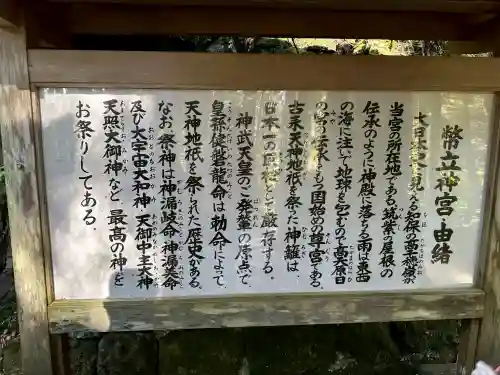 幣立神宮の由緒
大日本史に見える知保の高燕原が
当宮の所在地である。筑紫の屋根の
伝承のように神殿に落ちる雨は東西
の海に注いで地球を包むので高天原日
の宮の伝承をもつ国始めの尊宮である。
古来天神地祇を祭った神籬は、
日本一の巨桧として厳存する。
神武天皇のご発輦の原点で、
皇孫健磐龍命は勅命によって、
天神地祇を祭られた歴史がある。
なお祭神は神漏岐命・神漏美命
及び大宇宙大和神・天御中主大神
天照大御神など、最高の神を
お祭りしてある。